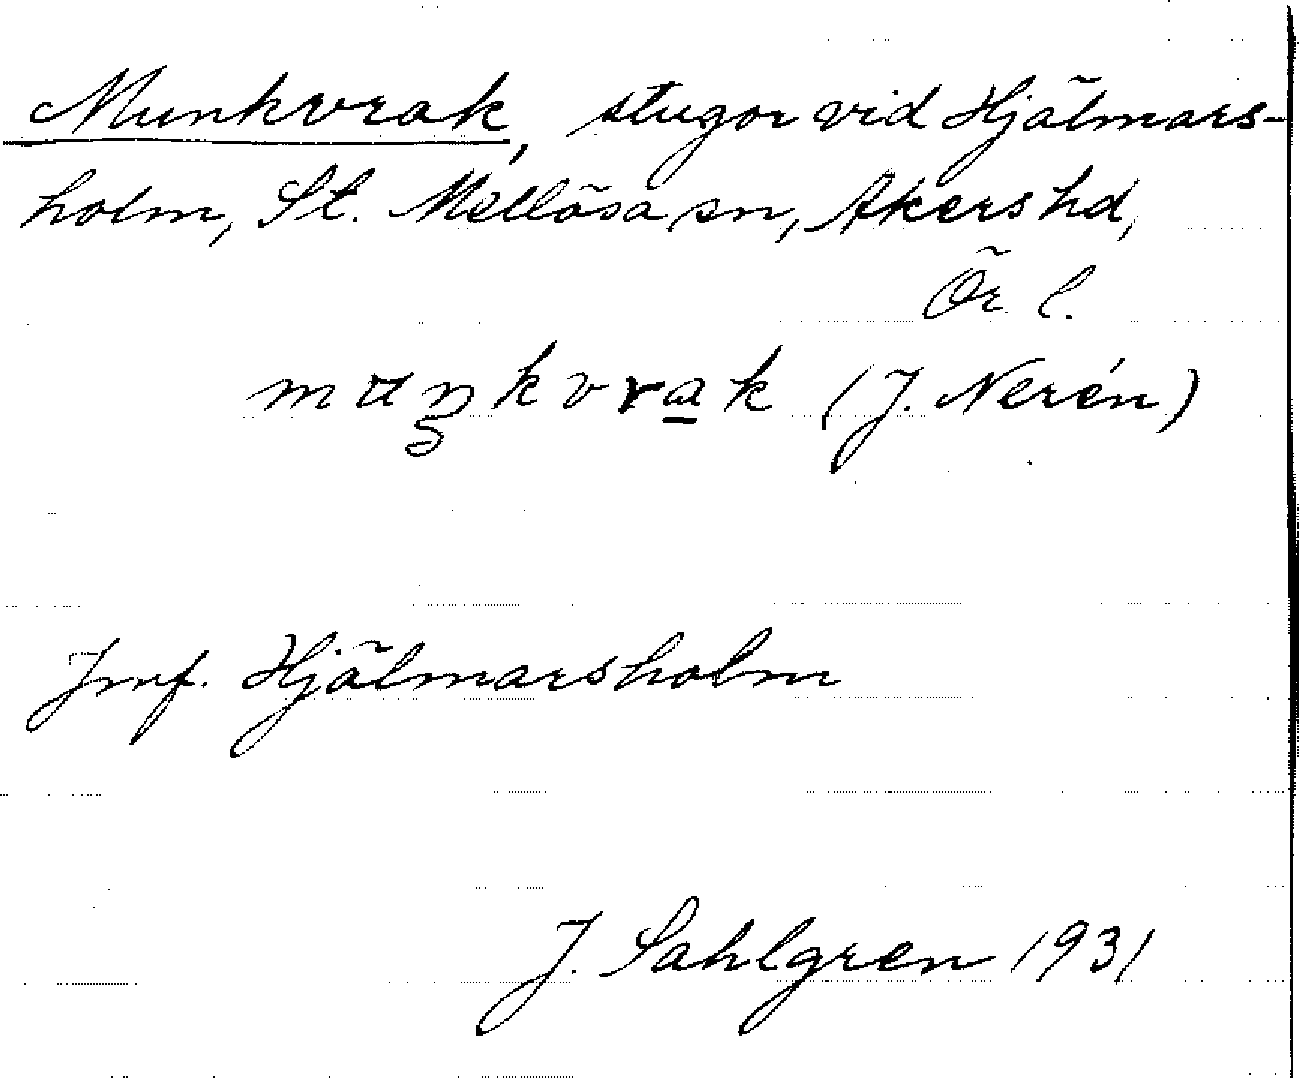 Munkvrak, stugor vid Hjälmars-
holm, St. Mellösa sn, Akers hd,
Ör l.
mɯŋkvrak (J. Nerén)
Jmf. Hjälmarsholm
J. Sahlgren 1931